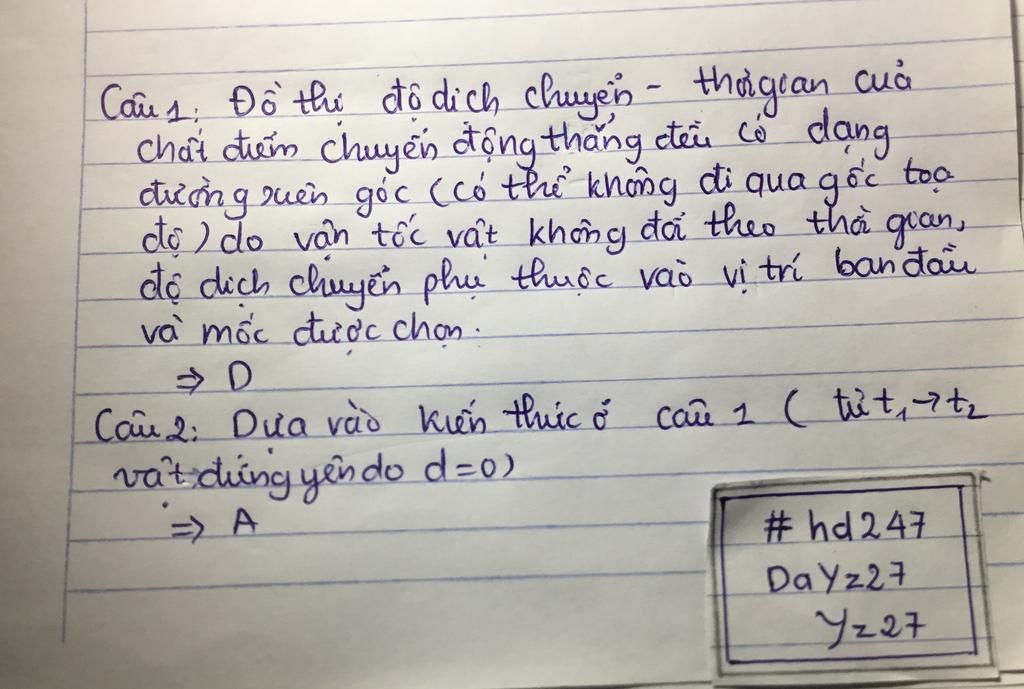 Câu 1: Đồ thị độ dịch chuyển - thời gian của
chất điểm chuyển động thẳng đều có dạng
đường xuên góc (có thể không đi qua gốc toạ
độ) do vận tốc vật không đổi theo thời gian,
độ dịch chuyển phụ thuộc vào vị trí ban đầu
và mốc được chọn.
⇒ D
Câu 2: Dựa vào kiến thức ở câu 1 ( từ t₁→t₂
vật đứng yên do d=0)
⇒ A
# hd247
DaYz27
Yz27